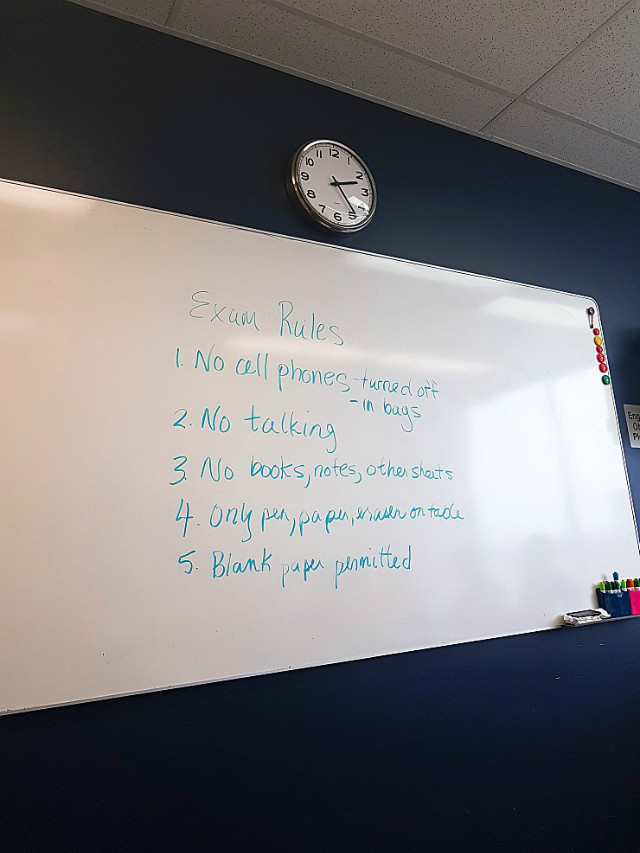 12
1
2
3
4
5
6
7
8
9
10
11
Exam Rules
1. No cell phones -turned off
-in bags
2. No talking
3. No books, notes, other sheets
4. Only pen, paper, eraser on table
5. Blank paper permitted
Eng